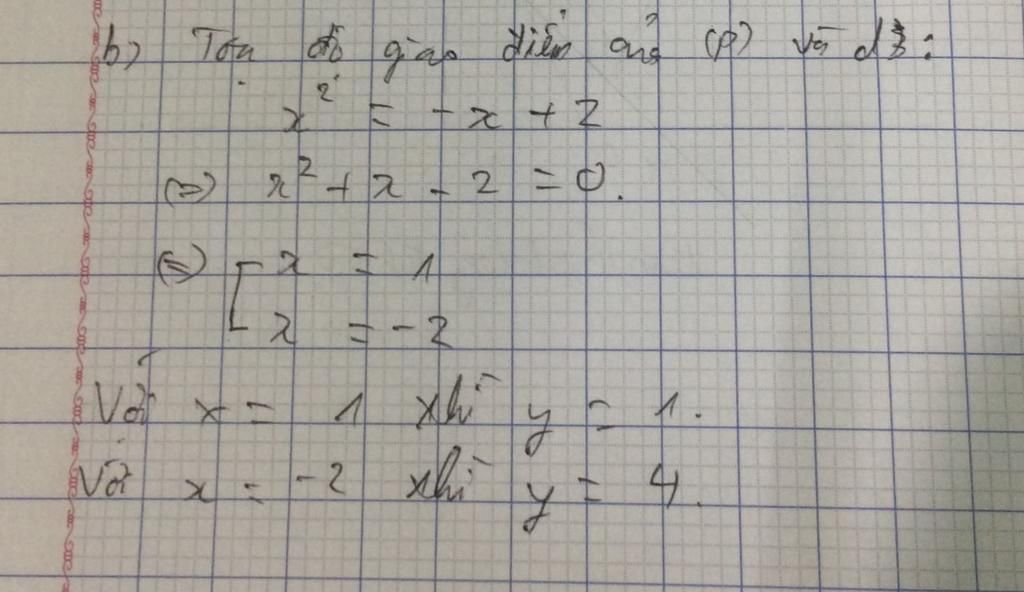 b) Tọa độ giao điểm của (P) và d3:
x² = -x + 2
(=>) x² + x - 2 = 0.
(=) [ x = 1
x = -2
Với x = 1 khi y = 1.
Với x = -2 khi y = 4.